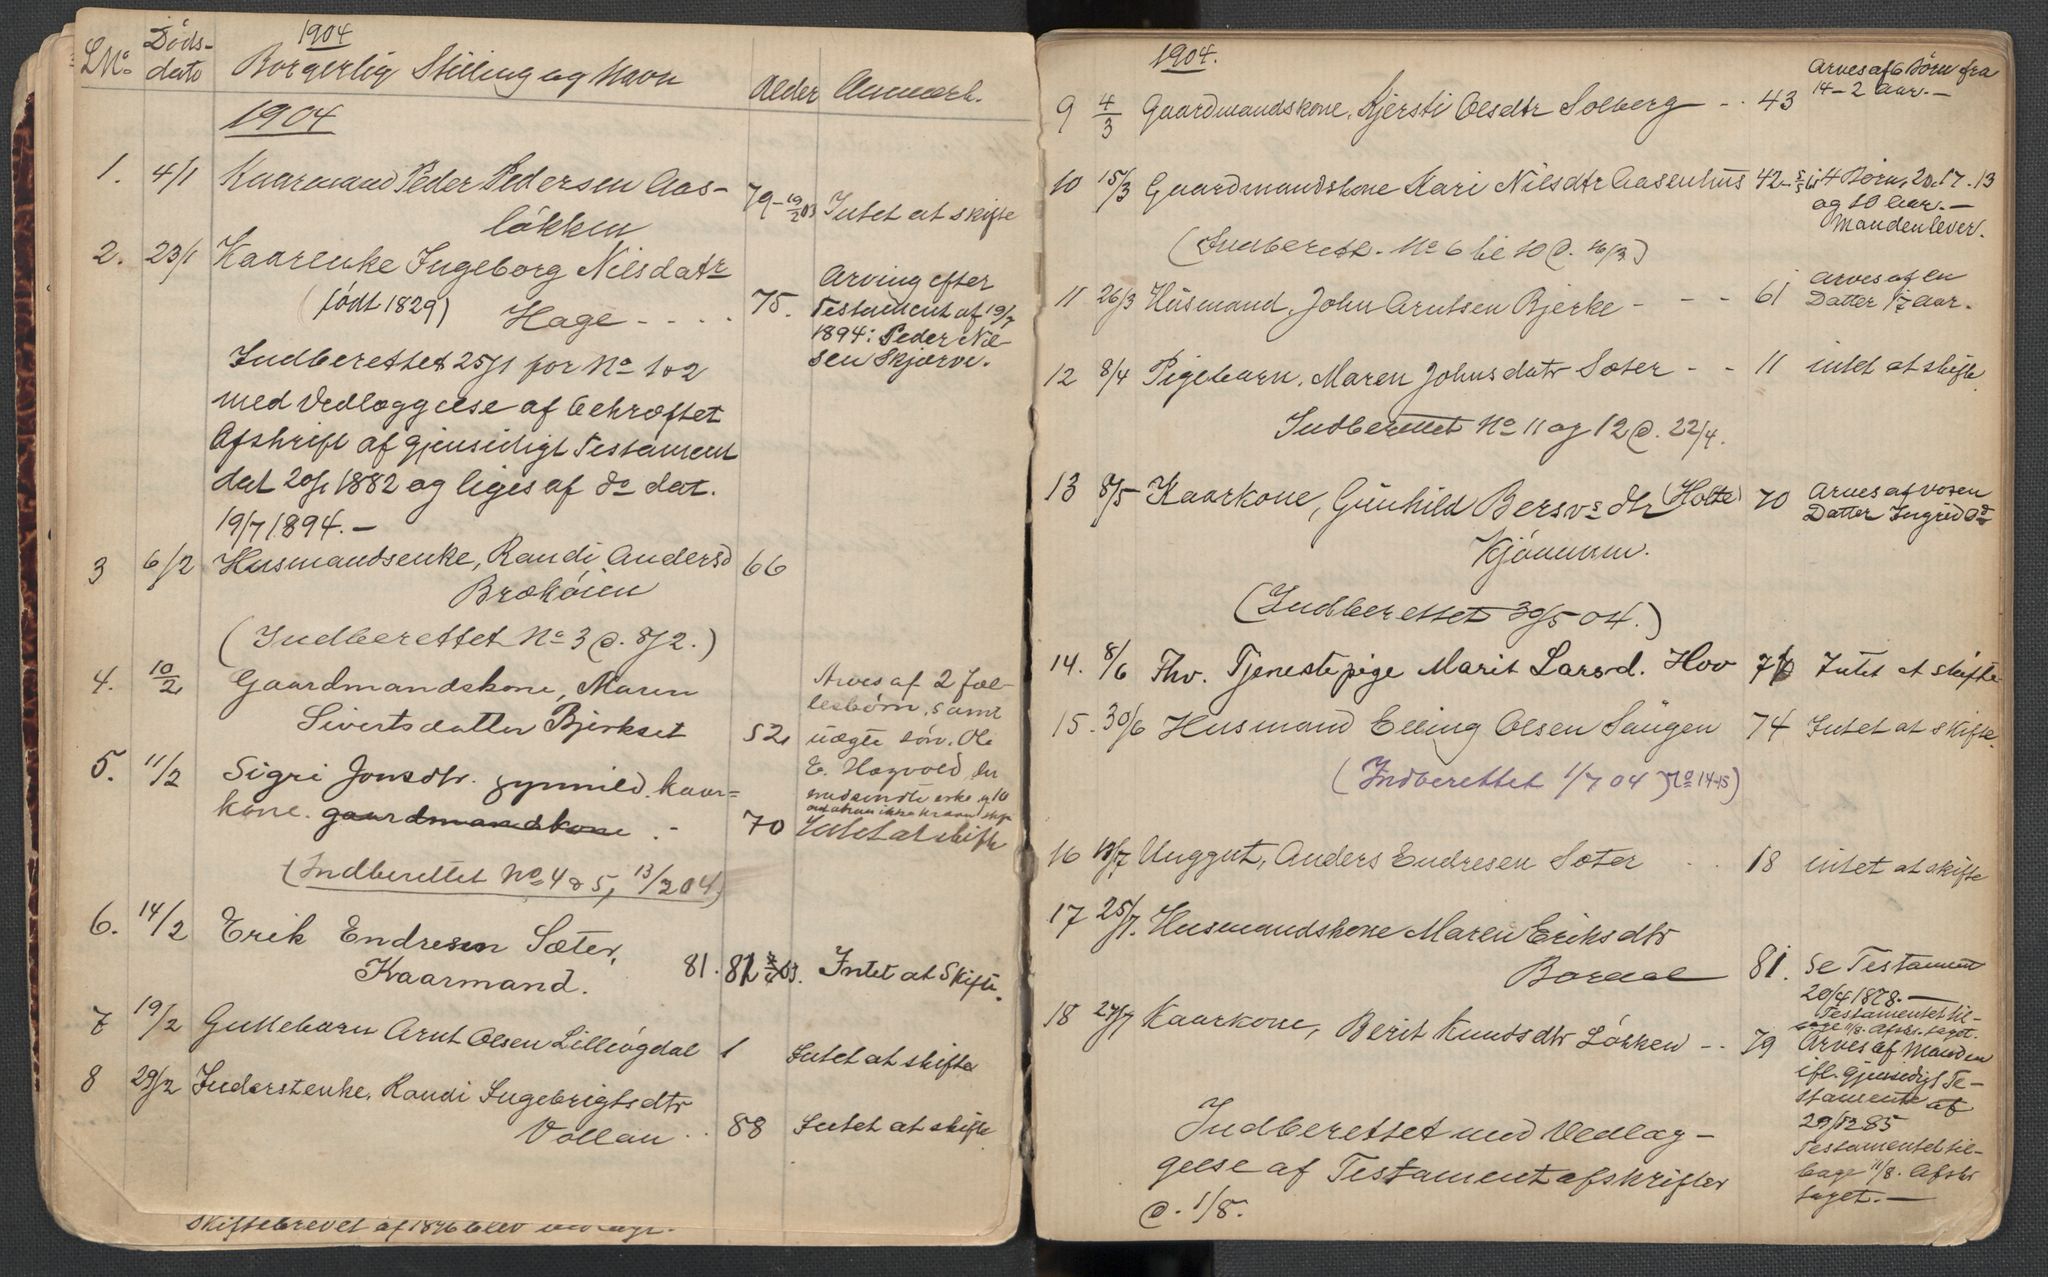 1904
L.No. Døds-dato Borgerlig Stilling og Navn Alder Anmærk.
1904
1. 4/1 Kaarmand Peder Pedersen Aas-
løkken 79 - 19/2 03 Intet at skifte
2. 23/1 Kaarenke Ingeborg Nilsdatr
(født 1829) Hage - - - - 75.
Arving efter
Testament af 19/7
1894: Peder Nil-
sen Skjærve.
Indberettet 25/1 for No 1 o 2
med Vedlæggelse af bekræftet
Afskrift af gjensidigt Testament
dat 20/1 1882 og liges af do dat.
19/7 1894. -
3 6/2 Husmandsenke, Randi Andersd 66
Brækøien
(Indberettet No 3 d. 8/2.)
4. 10/2 Gaardmandskone, Maren
Sivertsdatter Bjerkset 52
Arves af 2 Fæl-
lesbørn, samt
uægte søn. Ole
E. Hagvold, der
5. 11/2 Sigri Jonsdtr. Gynnild. kaar=
kone. gaardmandskone . - 70 Intet at skifte
(Indberettet No 4 & 5, 13/2 04)
6. 14/2 Erik Endresen Sæter,
Kaarmand. 81. 82 Intet at Skifte.
7 19/2 Guttebarn Arnt Olsen Lilleøgdal 1 Intet at skifte
8 29/2 Inderstenke, Randi Ingebrigtsdtr
Vollan . . 88 Intet at skifte
Skiftebrevet af 1876 blev
1904.
9 4/3 Gaardmandskone, Kjersti Olsdtr Solberg - . 43
Arves af 6 Børn fra
14 - 2 Aar. -
10 15/3 Gaardmandskone Kari Nilsdtr Aasenhus 42 - 4 Børn, 20. 17. 13
og 10 Aar. -
Manden lever.
(Indberett. No 6 til 10 d. 16/3)
11 26/3 Husmand, John Arntsen Bjerke - - - 61
Arves af en
Datter 17 Aar.
12 8/4 Pigebarn, Maren Johnsdatr Sæter - - 11 intet at skifte
Indberettet No 11 og 12 d. 22/4.
13 8/5 Kaarkone, Gunhild Bersvs dtr (Holte) 70
Arves af voxen
Datter Ingrid Od
Kjønnum.
(Indberettet 30/5 04.)
14. 8/6 Fhv. Tjenestepige Marit Larsd. Hov 70 Intet at skifte
15. 30/6 Husmand Elling Olsen Saugen 74 Intet at skifte.
(Indberettet 1/7 04 No 14-15)
16 18/7 Unggut, Anders Endresen Sæter 18 intet at skifte
17 25/7. Husmandskone Maren Eriksdtr
Bordal 81.
Se Testament
20/4 1878. -
Testamentet til-
bage 11/8. Afskr. taget.
18 27/7 Kaarkone, Berit Knudsdtr Løkken - . 79
Arves af Manden
ifl. gjensidigt Te-
stamente af
29/12 85
Testamentet til-
bage 11/8. Afskr
taget. -
Indberettet med Vedlæg-
gelse af Testamentafskrifter
d. 1/8.